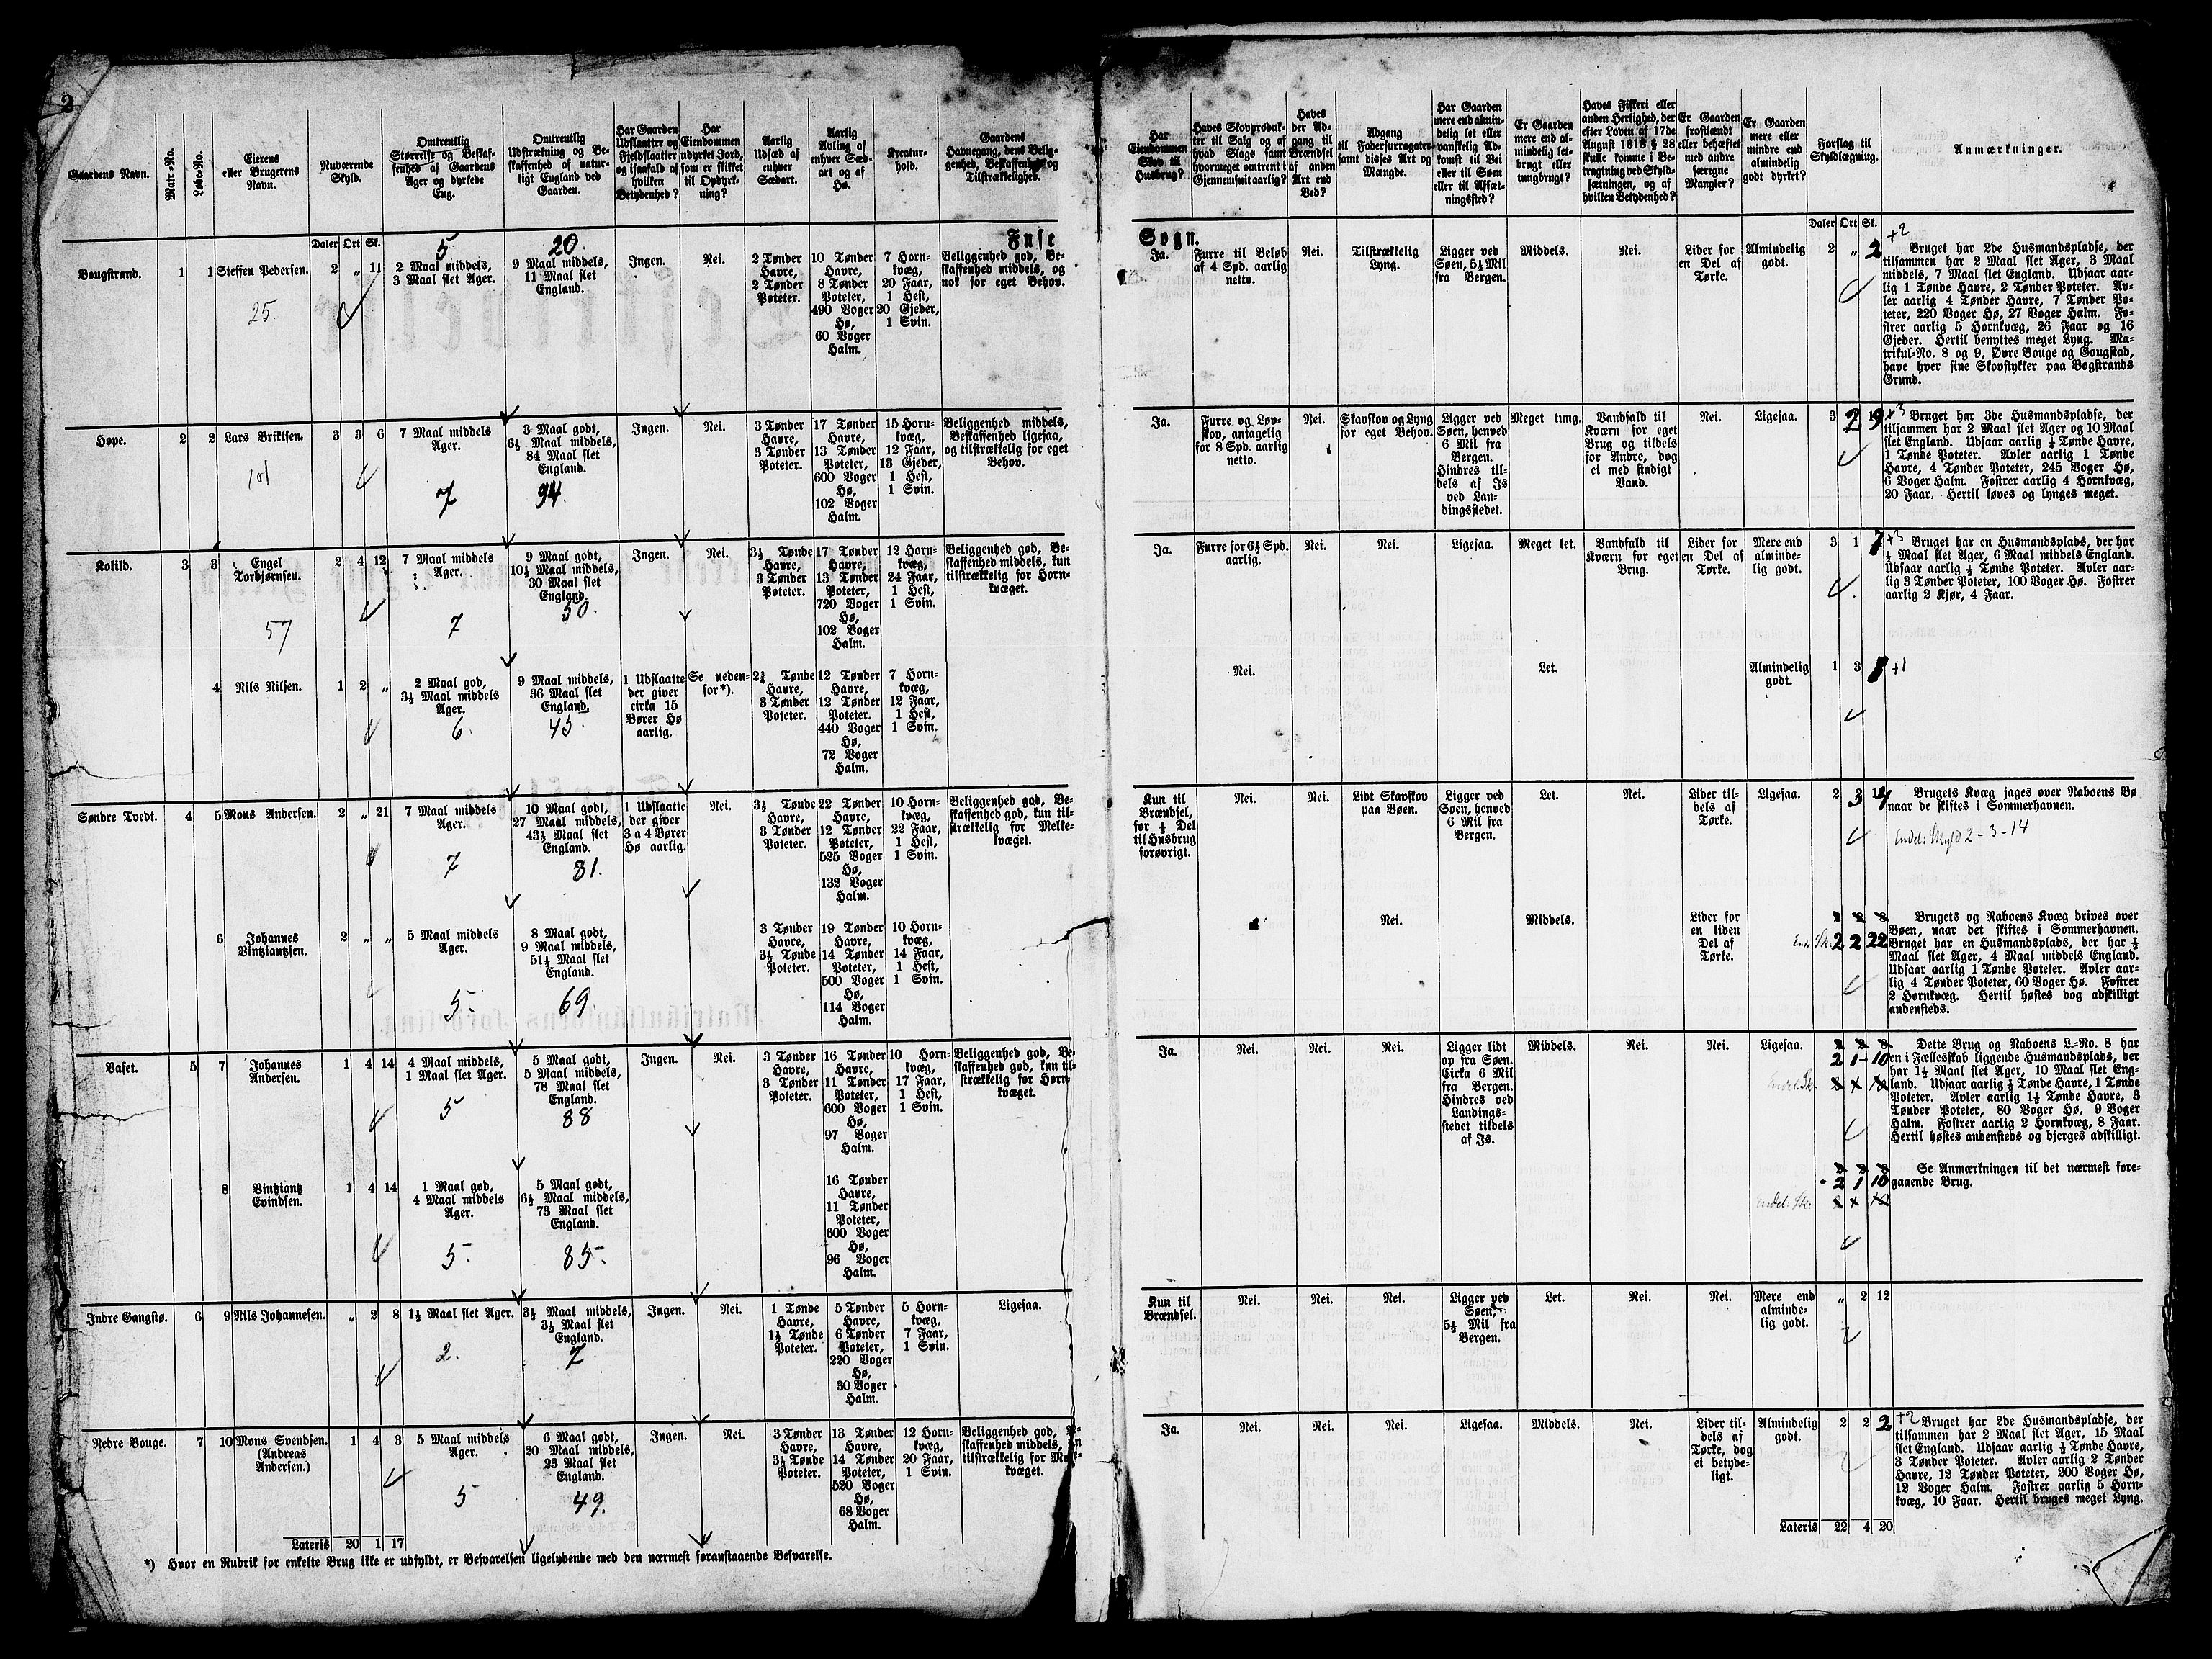 2
Gaardens Navn.
Matr.-No.
Løbe-No.
Eierens
eller Brugerens
Navn.
Nuværende
Skyld.
Omtrentlig
Størrelse og Beskaf-
fenhed af Gaardens
Ager og dyrkede
Eng.
Omtrentlig
Udstrækning og Be-
skaffenhed af natur-
ligt England ved
Gaarden.
Har Gaarden
Udslaatter og
Fjeldslaatter
og isaafald af
hvilken
Betydenhed?
Har
Eiendommen
udyrket Jord,
som er skikket
til Opdyrk-
ning?
Aarlig
Udsæd af
enhver
Sædart.
Aarlig
Avling af
enhver Sæd-
art og af
Hø.
Kreatur-
hold.
Gaardens
Havnegang, dens Belig-
genhed, Beskaffenhed og
Tilstrækkelighed.
Har
Eiendommen
Skov til
Husbrug?
Haves Skovproduk-
ter til Salg og af
hvad Slags samt
hvormeget omtrent i
Gjennemsnit aarlig?
Haves
der Ad-
gang til
Brændsel
af anden
Art end
Ved?
Adgang
til Fodersurrogater
samt disses Art og
Mængde.
Har Gaarden
mere end almin-
delig let eller
vanskelig Ad-
komst til Vei
eller til Søen
eller til Afsæt-
ningssted?
Er Gaarden
mere end al-
mindelig let-
brugt eller
tungbrugt?
Haves Fiskeri eller
anden Herlighed, der
efter Loven af 17de
August 1818 § 28
skulle komme i Be-
tragtning ved Skyld-
sætningen, og af
hvilken Betydenhed?
Er Gaarden
frostlændt
eller behæftet
med andre
særegne
Mangler?
Er Gaarden
mere eller
mindre end
almindelig
godt dyrket?
Forslag til
Skyldlægning.
Anmærkninger.
Fuse Sogn.
Daler Ort Sk.
Daler Ort Sk.
Bougstrand. 1 1 Steffen Pedersen. 2 „ 11
25.
5
2 Maal middels,
3 Maal slet Ager.
20.
9 Maal middels,
11 Maal slet
England.
Ingen.
Nei.
2 Tønder
Havre,
2 Tønder
Poteter.
10 Tønder
Havre,
8 Tønder
Poteter,
490 Voger
Hø,
60 Voger
Halm.
7 Horn-
kvæg,
20 Faar,
1 Hest,
20 Gjeder,
1 Svin.
Beliggenhed god, Be-
skaffenhed middels, og
nok for eget Behov.
Ja.
Furre til Beløb
af 4 Spd. aarlig
netto.
Nei.
Tilstrækkelig
Lyng.
Ligger ved
Søen, 5½ Mil
fra Bergen.
Middels.
Nei.
Lider for
en Del af
Tørke.
Almindelig
godt.
2 „ 2
+2
Bruget har 2de Husmandspladse, der
tilsammen har 2 Maal slet Ager, 3 Maal
middels, 7 Maal slet England. Udsaar aar-
lig 1 Tønde Havre, 2 Tønder Poteter. Av-
ler aarlig 4 Tønder Havre, 7 Tønder Po-
teter, 220 Voger Hø, 27 Voger Halm. Fo-
strer aarlig 5 Hornkvæg, 26 Faar og 16
Gjeder. Hertil benyttes meget Lyng. Ma-
trikul-No. 8 og 9, Øvre Bouge og Gougstad,
have hver sine Skovstykker paa Bogstrands
Grund.
Hope. 2 2 Lars Briktsen. 3 3 6
101
7 Maal middels
Ager.
7
3 Maal godt,
6½ Maal middels,
84 Maal slet
England.
94.
Ingen.
Nei.
3 Tønder
Havre,
3 Tønder
Poteter.
17 Tønder
Havre,
13 Tønder
Poteter,
600 Voger
Hø,
102 Voger
Halm.
15 Horn-
kvæg,
12 Faar,
13 Gjeder,
1 Hest,
1 Svin.
Beliggenhed middels,
Beskaffenhed ligesaa,
og tilstrækkelig for eget
Behov.
Ja.
Furre og Løv-
skov, antagelig
for 8 Spd. aarlig
netto.
Nei.
Skavskov og Lyng
for eget Behov.
Ligger ved
Søen, henved
6 Mil fra
Bergen.
Hindres til-
dels af Is
ved Lan-
dingsstedet.
Meget tung.
Vandfald til
Kværn for eget
Brug og tildels
for Andre, dog
ei med stadigt
Vand.
Nei.
Ligesaa.
3 2 9
+3
Bruget har 3de Husmandspladse, der
tilsammen har 2 Maal slet Ager og 10 Maal
slet England. Udsaar aarlig ½ Tønde Havre,
1 Tønde Poteter. Avler aarlig 1 Tønde
Havre, 4 Tønder Poteter, 245 Voger Hø,
6 Voger Halm. Fostrer aarlig 4 Hornkvæg,
20 Faar. Hertil løves og lynges meget.
Kolild. 3 3 Engel
Torbjørnsen. 2 4 12
57
7 Maal middels
Ager.
7
9 Maal godt,
10½ Maal middels,
30 Maal slet
England.
50.
Ingen.
Nei.
3½ Tønde
Havre,
3 Tønder
Poteter.
17 Tønder
Havre,
13 Tønder
Poteter,
720 Voger
Hø,
102 Voger
Halm.
12 Horn-
kvæg,
24 Faar,
1 Hest,
1 Svin.
Beliggenhed god, Be-
skaffenhed middels, kun
tilstrækkelig for Horn-
kvæget.
Ja.
Furre for 6½ Spd.
aarlig.
Nei.
Nei.
Ligesaa.
Meget let.
Vandfald til
Kværn for eget
Brug.
Lider for
en Del af
Tørke.
Mere end
alminde-
lig godt.
3 1 7
+3
Bruget har en Husmandsplads, der har
½ Maal slet Ager, 6 Maal middels England.
Udsaar aarlig ½ Tønde Poteter. Avler aar-
lig 3 Tønder Poteter, 100 Voger Hø. Fostrer
aarlig 2 Kjør, 4 Faar.
4 Nils Nilsen. 1 2 „
2 Maal god,
3½ Maal middels
Ager.
6.
9 Maal middels,
36 Maal slet
England.
45.
1 Udslaatte
der giver
cirka 15
Bører Hø
aarlig.
Se neden-
for*).
2¾ Tønde
Havre,
3 Tønder
Poteter.
12 Tønder
Havre,
12 Tønder
Poteter.
440 Voger
Hø,
72 Voger
Halm.
7 Horn-
kvæg,
12 Faar,
1 Hest,
1 Svin.
Nei.
Let.
Almindelig
godt.
1 3
+1
Søndre Tvedt. 4 5 Mons Andersen. 2 „ 21
7 Maal middels
Ager.
7
10 Maal godt,
27 Maal middels,
43½ Maal slet
England.
81.
1 Udslaatte
der giver
3 a 4 Bører
Hø aarlig.
Nei.
3½ Tønde
Havre,
3 Tønder
Poteter.
22 Tønder
Havre,
12 Tønder
Poteter,
525 Voger
Hø,
132 Voger
Halm.
10 Horn-
kvæg,
22 Faar,
1 Hest,
1 Svin.
Beliggenhed god, Be-
skaffenhed god, kun til-
strækkelig for Melke-
kvæget.
Kun til
Brændsel,
for ½ Del
til Husbrug
forøvrigt.
Nei.
Nei.
Lidt Skavskov
paa Bøen.
Ligger ved
Søen, henved
6 Mil fra
Bergen.
Let.
Nei.
Lider til-
dels af
Tørke.
Ligesaa.
2 3
Brugets Kvæg jages over Naboens Bø
naar de skiftes i Sommerhavnen.
Endel: Skyld 2-3-14
6 Johannes
Vintziantsen. 2 „ „
5 Maal middels
Ager.
5.
8 Maal godt,
9 Maal middels,
51½ Maal slet
England.
69.
3 Tønder
Havre,
3½ Tønde
Poteter.
19 Tønder
Havre,
14 Tønder
Poteter,
500 Voger
Hø,
114 Voger
Halm.
10 Horn-
kvæg,
14 Faar,
1 Hest,
1 Svin.
Nei.
Middels.
Lider for
en liden
Del af
Tørke.
2 2 8
End. Sk. 2 2 22
Brugets og Naboens Kvæg drives over
Bøen, naar det skiftes i Sommerhavnen.
Bruget har en Husmandsplads, der har ½
Maal slet Ager, 4 Maal middels England.
Udsaar aarlig 1 Tønde Poteter. Avler aar-
lig 4 Tønder Poteter, 60 Voger Hø. Fostrer
2 Hornkvæg. Hertil høstes dog adskilligt
andensteds.
Vaset. 5 7 Johannes
Andersen. 1 4 14
4 Maal middels,
1 Maal slet Ager.
5
5 Maal godt,
5 Maal middels,
78 Maal slet
England.
88
Ingen.
Nei.
3 Tønder
Havre,
3 Tønder
Poteter.
16 Tønder
Havre,
11 Tønder
Poteter,
600 Voger
Hø,
97 Voger
Halm.
10 Horn-
kvæg,
17 Faar,
1 Hest,
1 Svin.
Beliggenhed god, Be-
skaffenhed god, kun til-
strækkelig for Horn-
kvæget.
Ja.
Nei.
Nei.
Nei.
Ligger lidt
op fra Søen.
Cirka 6 Mil
fra Bergen.
Hindres ved
Landings-
stedet tildels
af Is.
Middels.
Nei.
Nei.
Ligesaa.
2 2 8
2 1-10
Endel. Sk.
Dette Brug og Naboens L.-No. 8 har
en i Fællesskab liggende Husmandsplads, der
har 1½ Maal slet Ager, 10 Maal slet Eng-
land. Udsaar aarlig ½ Tønde Havre, 1 Tønde
Poteter. Avler aarlig 1½ Tønde Havre, 3
Tønder Poteter, 80 Voger Hø, 9 Voger
Halm. Fostrer aarlig 2 Hornkvæg, 8 Faar.
Hertil høstes andensteds og bjerges adskilligt.
8 Vintziantz
Evindsen. 1 4 14
1 Maal god,
4 Maal middels
Ager.
5.
5 Maal godt,
6½ Maal middels,
73 Maal slet
England.
85.
16 Tønder
Havre,
11 Tønder
Poteter,
600 Voger
Hø,
96 Voger
Halm.
2 2 8
2 1 10
endel: Sk.
Se Anmærkningen til det nærmest fore-
gaaende Brug.
Indre Gangstø. 6 9 Nils Johannesen. „ 2 8
1½ Maal slet Ager.
2.
3½ Maal middels,
3½ Maal slet
England.
7
Ingen.
Nei.
1 Tønde
Havre,
1½ Tønde
Poteter.
5 Tønder
Havre,
6 Tønder
Poteter,
220 Voger
Hø,
30 Voger
Halm.
5 Horn-
kvæg,
7 Faar,
1 Svin.
Ligesaa.
Kun til
Brændsel.
Nei.
Nei.
Nei.
Ligger ved
Søen,
5½ Mil fra
Bergen.
Let.
Nei.
Nei.
Mere end
alminde-
lig godt.
„ 2 12
Nedre Bouge. 7 10 Mons Svendsen.
(Andreas
Andersen.) 1 4 3
5 Maal middels
Ager.
5
6 Maal godt,
20 Maal middels,
23 Maal slet
England.
49.
Ingen.
Nei.
3 Tønder
Havre,
3½ Tønde
Poteter.
13 Tønder
Havre,
14 Tønder
Poteter,
520 Voger
Hø,
68 Voger
Halm.
12 Horn-
kvæg,
20 Faar,
1 Svin.
Beliggenhed god,
skaffenhed middels,
tilstrækkelig for
kvæget.
Ja.
Nei.
Nei.
Nei.
Ligesaa.
Middels.
Nei.
Lider til-
dels af
Tørke, dog
ei betyde-
ligt.
Almindelig
godt.
2 2 2
+2
Bruget har 2de Husmandspladse, der
tilsammen har 2 Maal slet Ager, 15 Maal
slet England. Udsaar aarlig ½ Tønde Havre,
3 Tønder Poteter. Avler aarlig 2 Tønder
Havre, 12 Tønder Poteter, 200 Voger Hø,
12 Voger Halm. Fostrer aarlig 5 Horn-
kvæg, 10 Faar. Hertil bruges meget Lyng.
Lateris 20 1 17
Lateris 22 4 20
*) Hvor en Rubrik for enkelte Brug ikke er udfyldt, er Besvarelsen ligelydende med den nærmest foranstaaende Besvarelse.